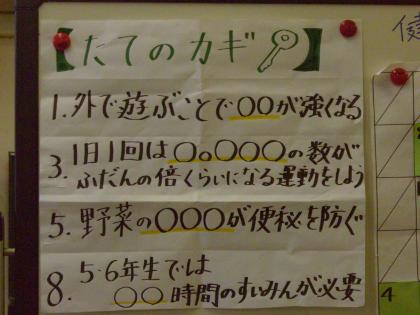 【たてのカギ】
1. 外で遊ぶことで○○が強くなる
3. 1日1回は○。○○○の数が
ふだんの倍くらいになる運動をしよう
5. 野菜の○○○が便秘を防ぐ
8. 5・6年生では
○○時間のすいみんが必要
健
4